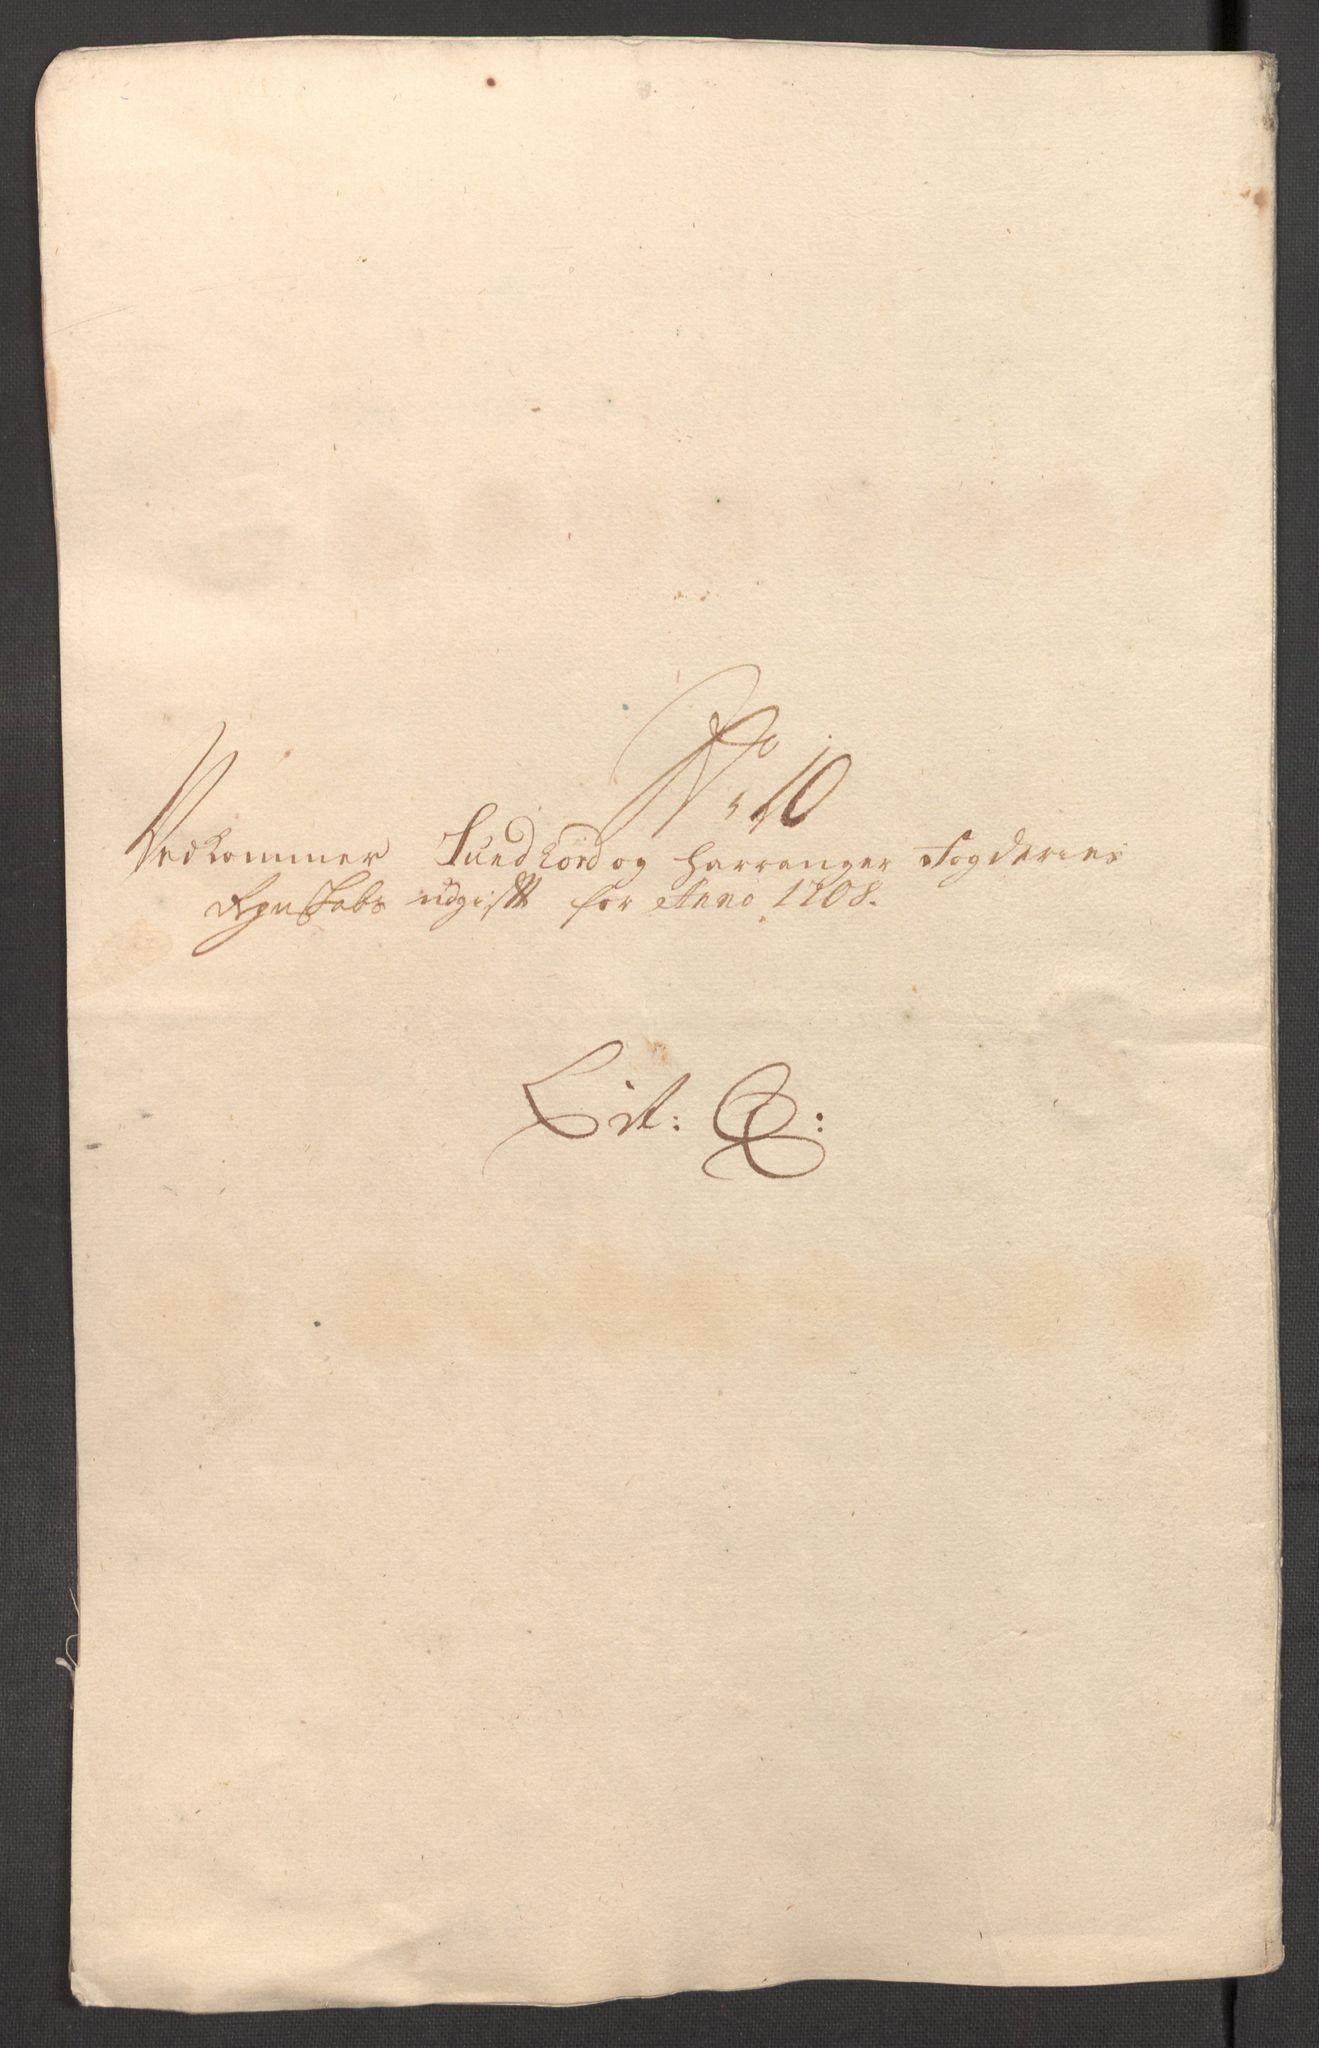 No 10
Vedkommer Sundhord og Harranger Fogderies
Regnskabs udgifft for Anno 1708.
Lit: Q: